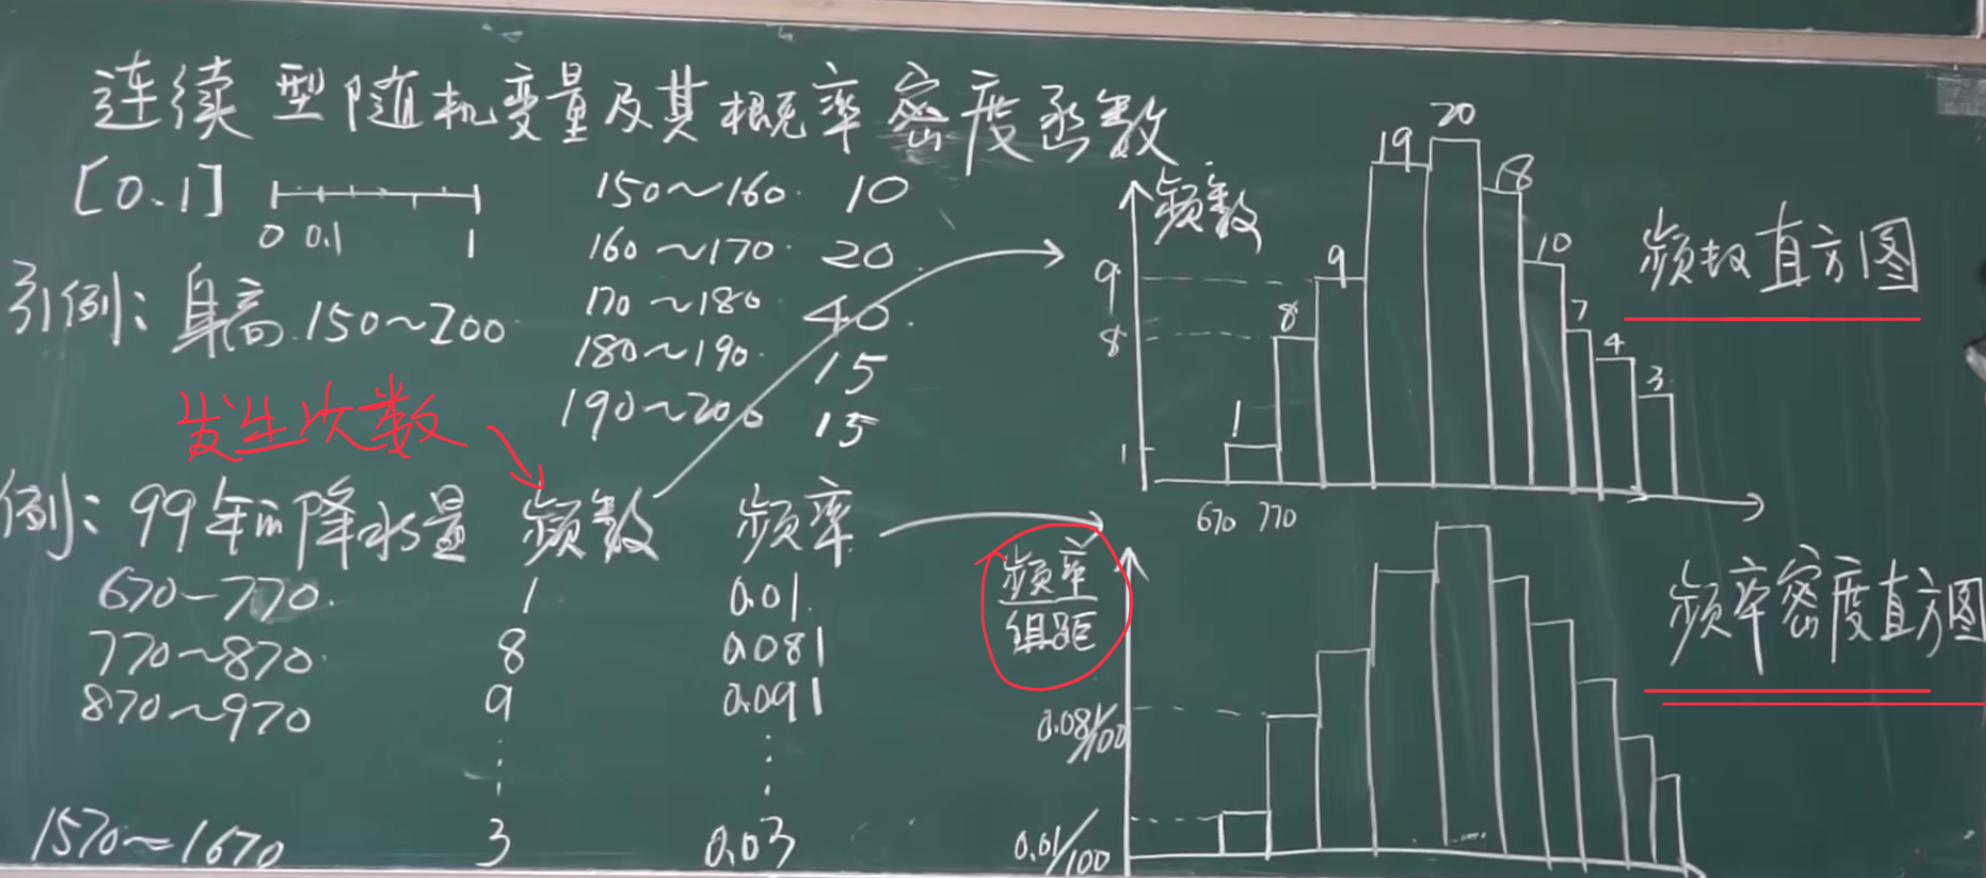 连续型随机变量及其概率密度函数
[0.1]
0 0.1 1
引例：身高.150～200
150～160. 10
160～170. 20
170～180 40
180～190. 15
190～200 15
发生次数
例：99年的降水量 频数 频率
670-770. 1 0.01
770～870. 8 0.081
870～970 9 0.091
⋮ ⋮
1570～1670 3 0.03
频数
9
8
1
1 8 9 19 20 18 10 7 4 3
670 770
频数直方图
频率
组距
0.081/100
0.01/100
频率密度直方图